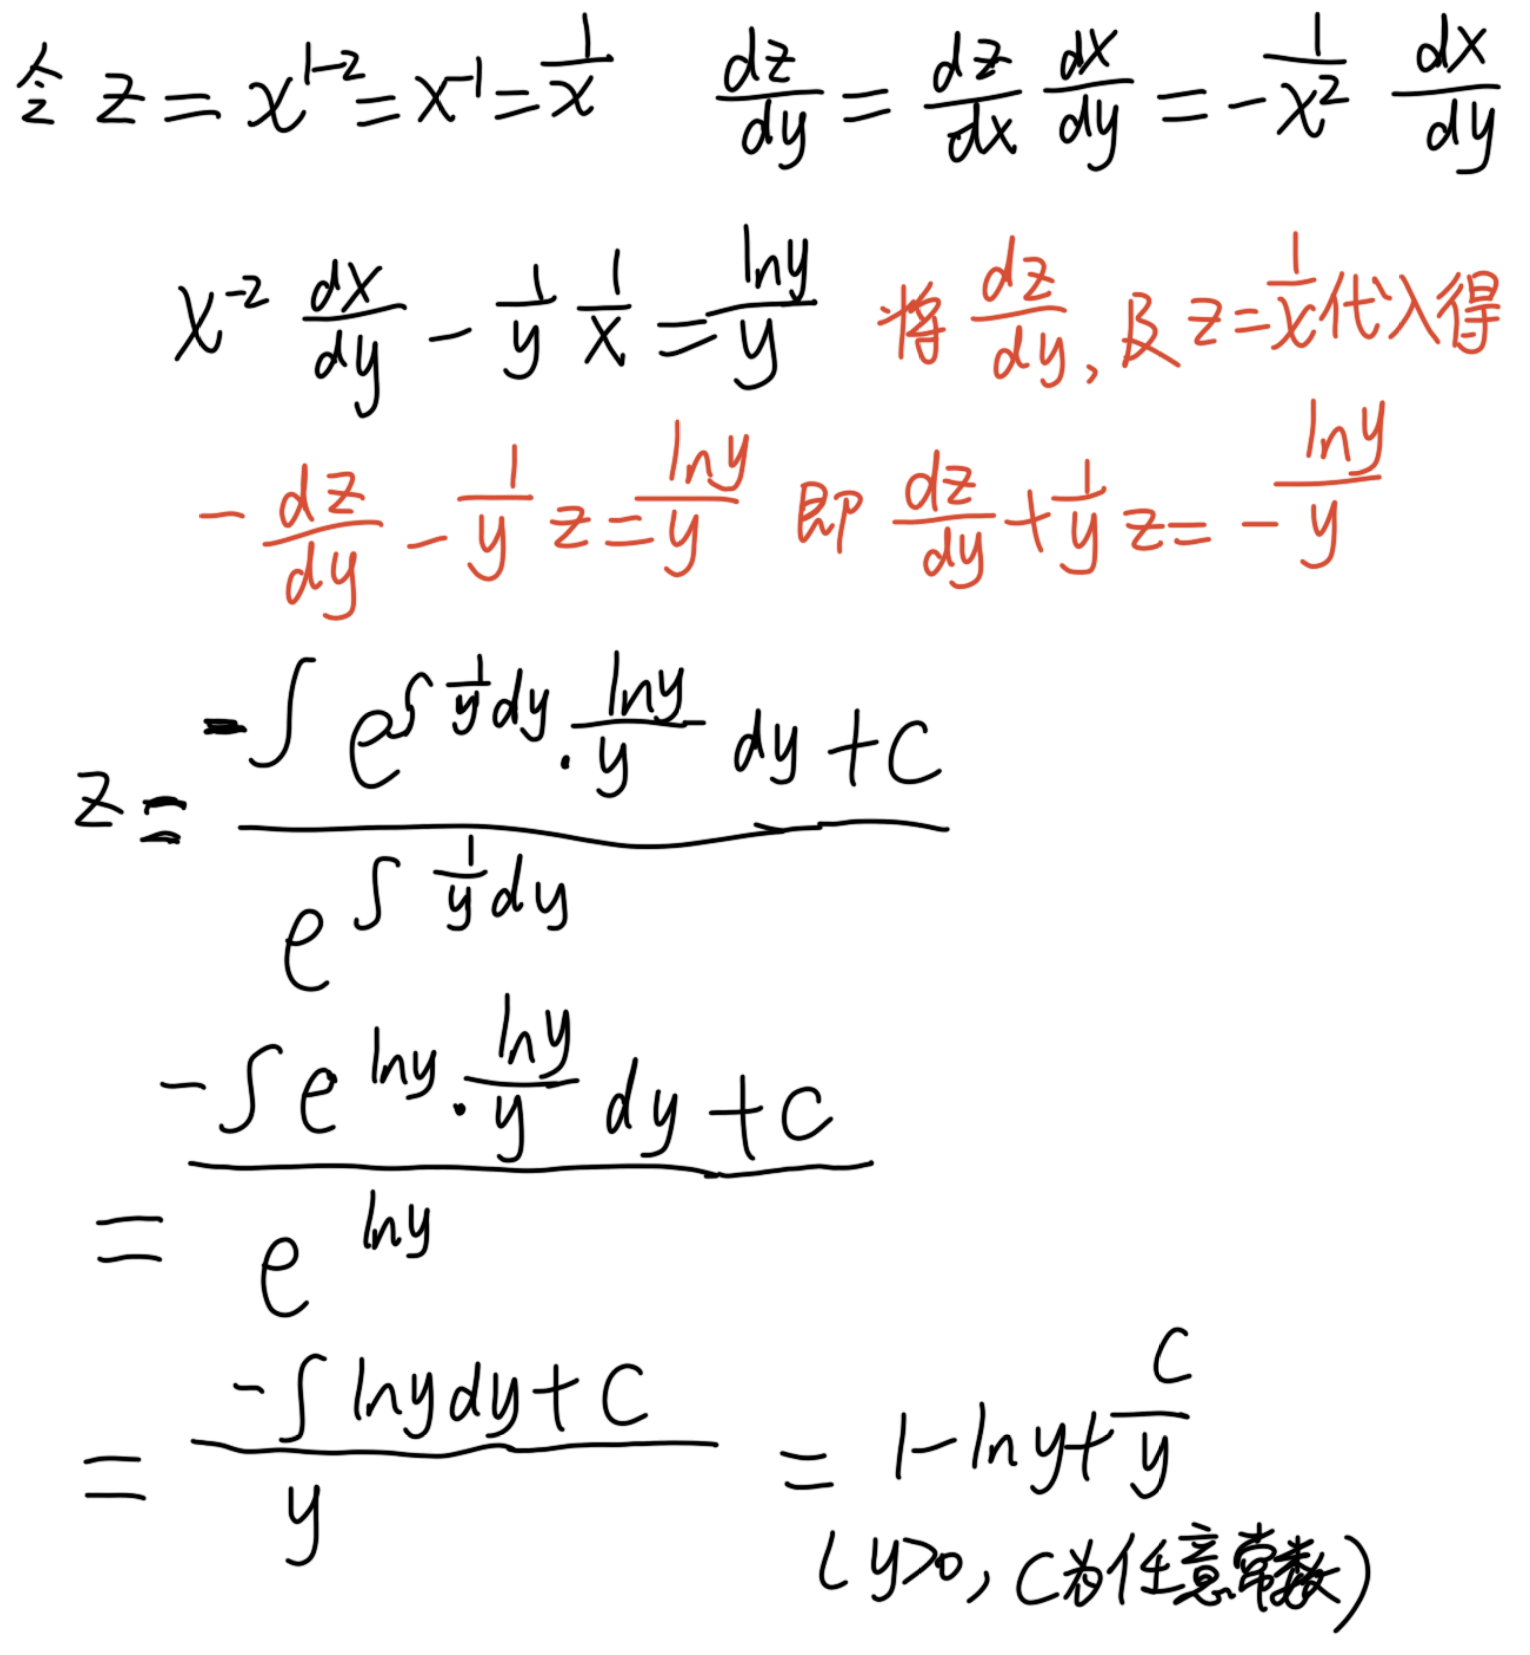 令 z = x^{1-2} = x^{-1} = \frac{1}{x} \frac{dz}{dy} = \frac{dz}{dx} \frac{dx}{dy} = -\frac{1}{x^2} \frac{dx}{dy}
x^{-2} \frac{dx}{dy} - \frac{1}{y} \frac{1}{x} = \frac{lny}{y} 将 \frac{dz}{dy}, 及 z = \frac{1}{x} 代入得
-\frac{dz}{dy} - \frac{1}{y} z = \frac{lny}{y} 即 \frac{dz}{dy} + \frac{1}{y} z = -\frac{lny}{y}
z = \frac{-∫ e^{∫ \frac{1}{y} dy} · \frac{lny}{y} dy + C}{e^{∫ \frac{1}{y} dy}}
= \frac{-∫ e^{lny} · \frac{lny}{y} dy + C}{e^{lny}}
= \frac{-∫ lny dy + C}{y} = 1 - lny + \frac{C}{y}
(y>0, C为任意常数)